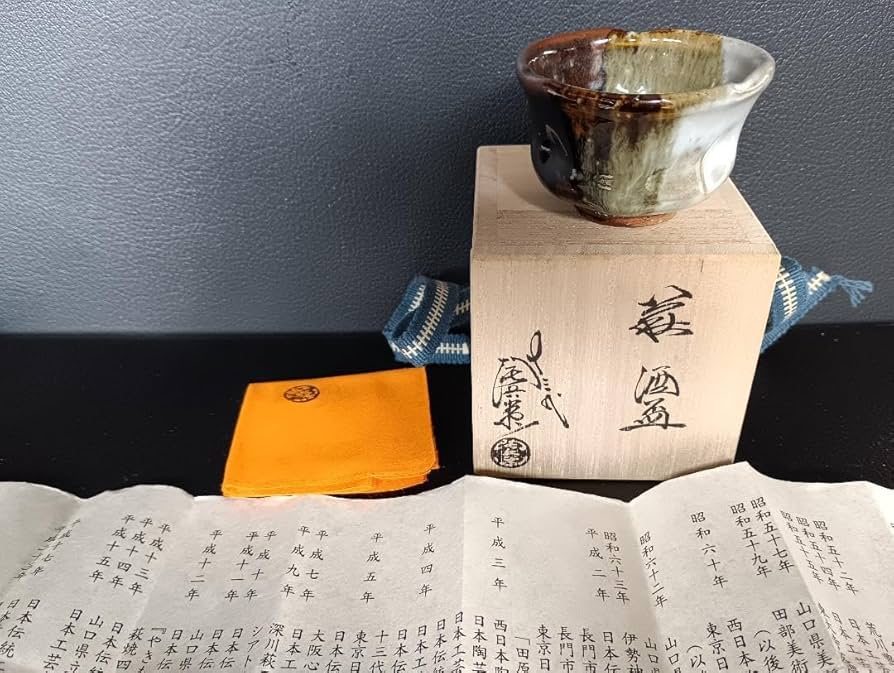 萩 酒盃
十三代
陶兵衛
昭和五十二年
昭和五十四年
昭和五十五年
山口県美
昭和五十七年 田部美術
（以後
昭和五十九年 西日本
昭和六十年 東京日
（以
山口県
昭和六十二年 山口
伊勢神
昭和六十三年 日本伝
平成二年 長門市
長門市
東京日
「田原
平成三年 西日本陶
日本陶芸
日本工芸
平成四年 日本伝
日本伝
平成五年 十三代
東京日
日本伝
平成七年 大阪心
平成九年 日本工
平成十年 深川萩
シアト
平成十一年 日本伝
平成十二年 山口県
日本伝
平成十三年 『やきも
平成十四年 萩焼四
平成十五年 日本伝
山口県立
日本工芸
平成十七年 日本伝統